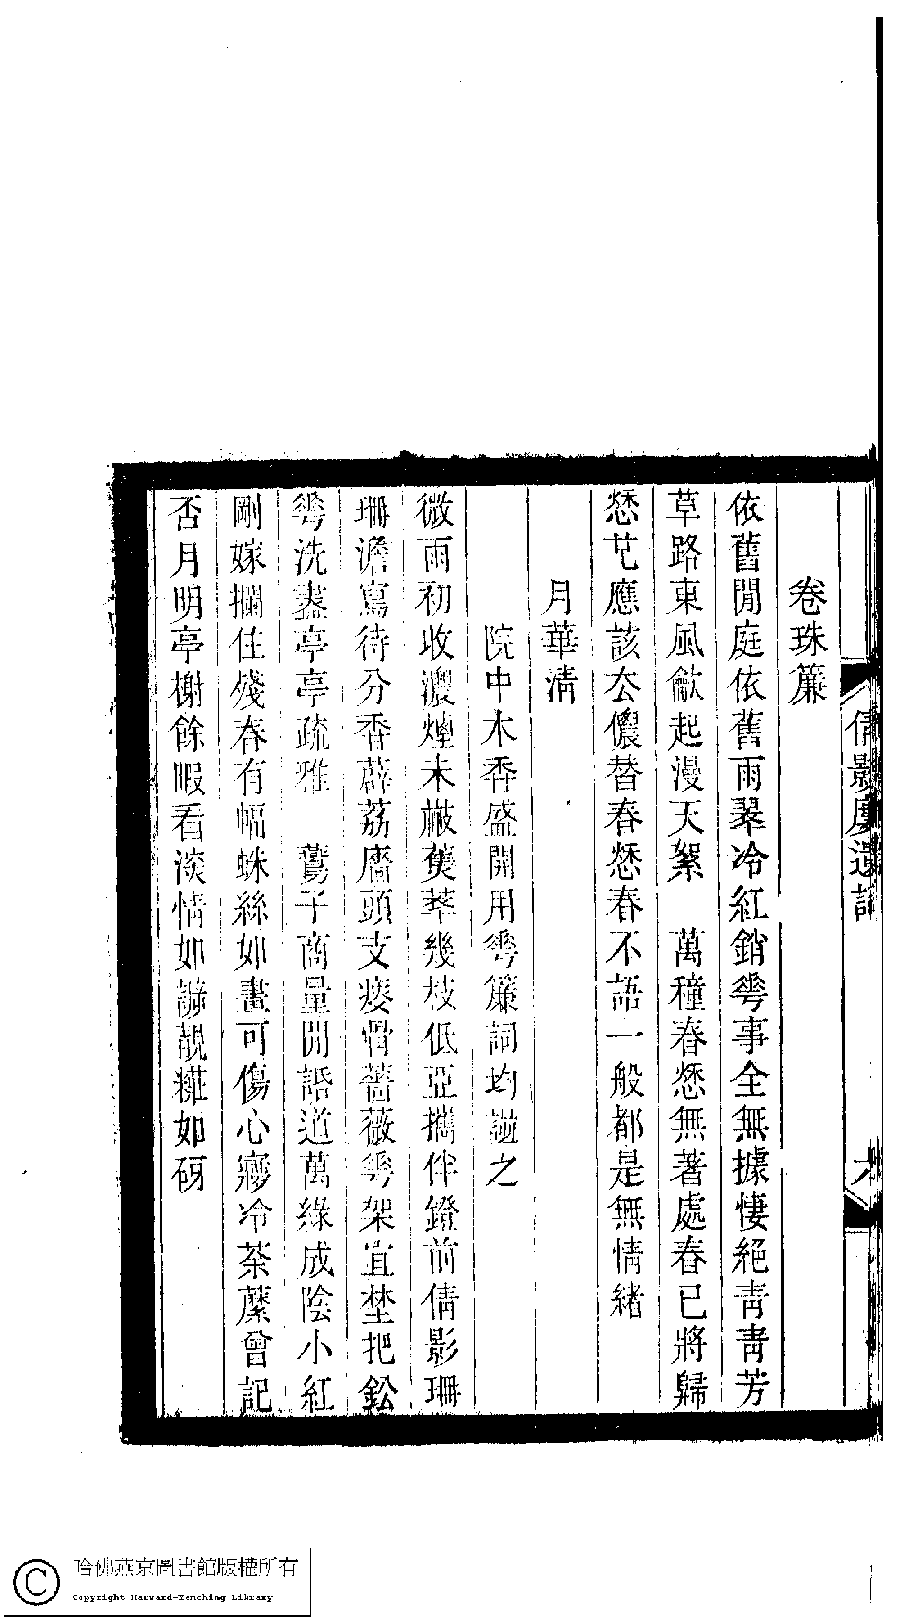 卷珠簾
依舊閒庭依舊雨翠冷紅銷蕚事全無據悽絕靑靑芳
草路東風歘起漫天絮　萬穜春愁無著處春已將歸
愁芅應該厺儂替春愁春不語一般都是無情緖
月華淸
院中木香盛開用蕚簾詞均譺之
微雨初收濃煙未㪿蒺萃幾枝低亞攜伴鐙前倩影珊
珊澹寫待分香薜荔牆頭支瘦骨薔薇蕚架宜埜把鈆
蕚洗盡亭亭疏雅　鷰子商量閒話道萬綠成陰小紅
剛嫁攔住殘春有幅蛛絲如畫可傷心㝱冷荼蘪曾記
否月明亭榭餘暇看淡情如謝靚糚如砑
倩影廔遺詞
哈佛燕京圖書館版權所有
Copyright Harvard-Yenching Library